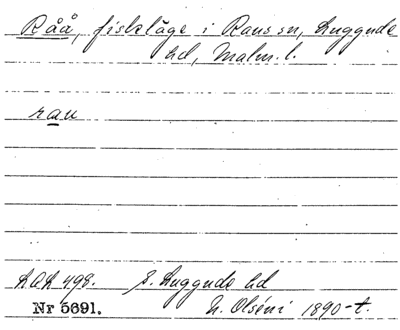 Råå, fiskläge i Raus sn, Luggude
hd, Malm. l.
rau
LAL 498. S. Luggude hd
Nr 5691. N. Olséni 1890-t.